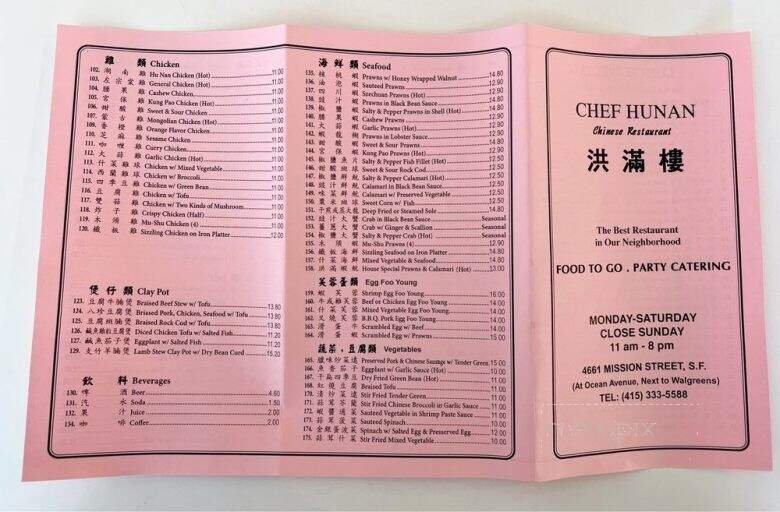 雞 類 Chicken
102. 湖 南 雞 Hu Nan Chicken (Hot) 11.00
103. 左 宗 棠 雞 General Chicken (Hot) 11.00
104. 腰 果 雞 Cashew Chicken 11.00
105. 宮 保 雞 Kung Pao Chicken (Hot) 11.00
106. 甜 酸 雞 Sweet & Sour Chicken 11.00
107. 蒙 古 雞 Mongolian Chicken (Hot) 11.00
109. 香 橙 雞 Orange Flavor Chicken 11.00
110. 芝 麻 雞 Sesame Chicken 11.00
111. 咖 喱 雞 Curry Chicken 11.00
112. 大 蒜 雞 Garlic Chicken (Hot) 11.00
113. 什 菜 雞 球 Chicken w/ Mixed Vegetable 11.00
114. 西 蘭 雞 球 Chicken w/ Broccoli 11.00
115. 四 季 豆 雞 Chicken w/ Green Bean 11.00
116. 豆 腐 雞 Chicken w/ Tofu 11.00
117. 雙 菇 雞 Chicken w/ Two Kinds of Mushroom 11.00
118. 炸 子 雞 Crispy Chicken (Half) 11.00
119. 木 須 雞 Mu-Shu Chicken (4) 11.00
120. 鐵 板 雞 Sizzling Chicken on Iron Platter 12.00
煲 仔 類 Clay Pot
123. 豆腐牛腩煲 Braised Beef Stew w/ Tofu 13.80
124. 八珍豆腐煲 Briased Pork, Chicken, Seafood w/ Tofu 13.80
125. 豆腐斑腩煲 Braised Rock Cod w/ Tofu 13.80
126. 鹹魚雞粒豆腐煲 Diced Chicken Tofu w/ Salted Fish 11.20
127. 鹹魚茄子煲 Eggplant w/ Salted Fish 11.20
129. 支竹羊腩煲 Lamb Stew Clay Pot w/ Dry Bean Curd 15.20
飲 料 Beverages
130. 啤 酒 Beer 4.60
131. 汽 水 Soda 1.50
132. 果 汁 Juice 2.00
134. 咖 啡 Coffee 2.00
海 鮮 類 Seafood
135. 核 桃 蝦 Prawns w/ Honey Wrapped Walnut 14.80
136. 油 泡 蝦 Sauteed Prawns 12.90
137. 四 川 蝦 Szechuan Prawns (Hot) 12.90
138. 豉 汁 蝦 Prawns in Black Bean Sauce 12.90
139. 椒 鹽 蝦 Salty & Pepper Prawns in Shell (Hot) 14.80
140. 腰 果 蝦 Cashew Prawns 12.90
141. 大 蒜 蝦 Garlic Prawns (Hot) 12.90
142. 蝦 龍 糊 Prawns in Lobster Sauce 12.90
143. 甜 酸 蝦 Sweet & Sour Prawns 14.80
144. 宮 保 蝦 Kung Pao Prawns (Hot) 12.90
145. 椒 鹽 魚 片 Salty & Pepper Fish Fillet (Hot) 12.50
146. 甜 酸 斑 球 Sweet & Sour Rock Cod 12.50
147. 椒 鹽 鮮 魷 Salty & Pepper Calamari (Hot) 12.50
148. 豉 汁 鮮 魷 Calamari in Black Bean Sauce 12.50
149. 味 菜 鮮 魷 Calamari w/ Preserved Vegetable 12.50
150. 粟 米 斑 球 Sweet Corn w/ Fish 12.50
151. 干煎或蒸大龍 Deep Fried or Steamed Sole 14.80
152. 豉 汁 大 蟹 Crab in Black Bean Sauce Seasonal
153. 薑 蔥 大 蟹 Crab w/ Ginger & Scallion Seasonal
154. 椒 鹽 大 蟹 Salty & Pepper Crab (Hot) Seasonal
155. 木 須 蝦 Mu-Shu Prawns (4) 12.90
156. 鐵 板 海 鮮 Sizzling Seafood on Iron Platter 14.80
157. 什 菜 海 鮮 Mixed Vegetable & Seafood 14.80
158. 洪 滿 蝦 魷 House Special Prawns & Calamari (Hot) 13.00
芙 蓉 蛋 類 Egg Foo Young
159. 蝦 芙 蓉 Shrimp Egg Foo Young 16.00
160. 牛或雞芙蓉 Beef or Chicken Egg Foo Young 14.00
161. 什 菜 芙 蓉 Mixed Vegetable Egg Foo Young 14.00
162. 叉 燒 芙 蓉 B.B.Q. Pork Egg Foo Young 14.00
163. 滑 蛋 牛 Scrambled Egg w/ Beef 14.00
164. 滑 蛋 蝦 Scrambled Egg w/ Prawns 15.00
蔬 菜 , 豆 腐 類 Vegetables
165. 臘味炒菜遠 Preserved Pork & Chinese Saunage w/ Tender Green 15.00
166. 魚 香 茄 子 Eggplant w/ Garlic Sauce (Hot) 10.00
167. 干扁四季豆 Dry Fried Green Bean (Hot) 11.00
168. 紅 燒 豆 腐 Braised Tofu 11.00
170. 清 炒 菜 遠 Stir Fried Tender Green 11.00
171. 蒜 茸 芥 蘭 Stir Fried Chinese Broccoli in Garlic Sauce 11.00
172. 蝦 醬 通 菜 Sauteed Vegetable in Shrimp Paste Sauce 11.00
173. 蒜 茸 菠 菜 Sauteed Spinach 10.00
174. 金銀蛋菠菜 Spinach w/ Salted Egg & Preserved Egg 12.00
175. 蒜 茸 什 菜 Stir Fried Mixed Vegetable 10.00
CHEF HUNAN
Chinese Restaurant
洪 滿 樓
The Best Restaurant
in Our Neighborhood
FOOD TO GO . PARTY CATERING
MONDAY-SATURDAY
CLOSE SUNDAY
11 am - 8 pm
4661 MISSION STREET, S.F.
(At Ocean Avenue, Next to Walgreens)
TEL: (415) 333-5588